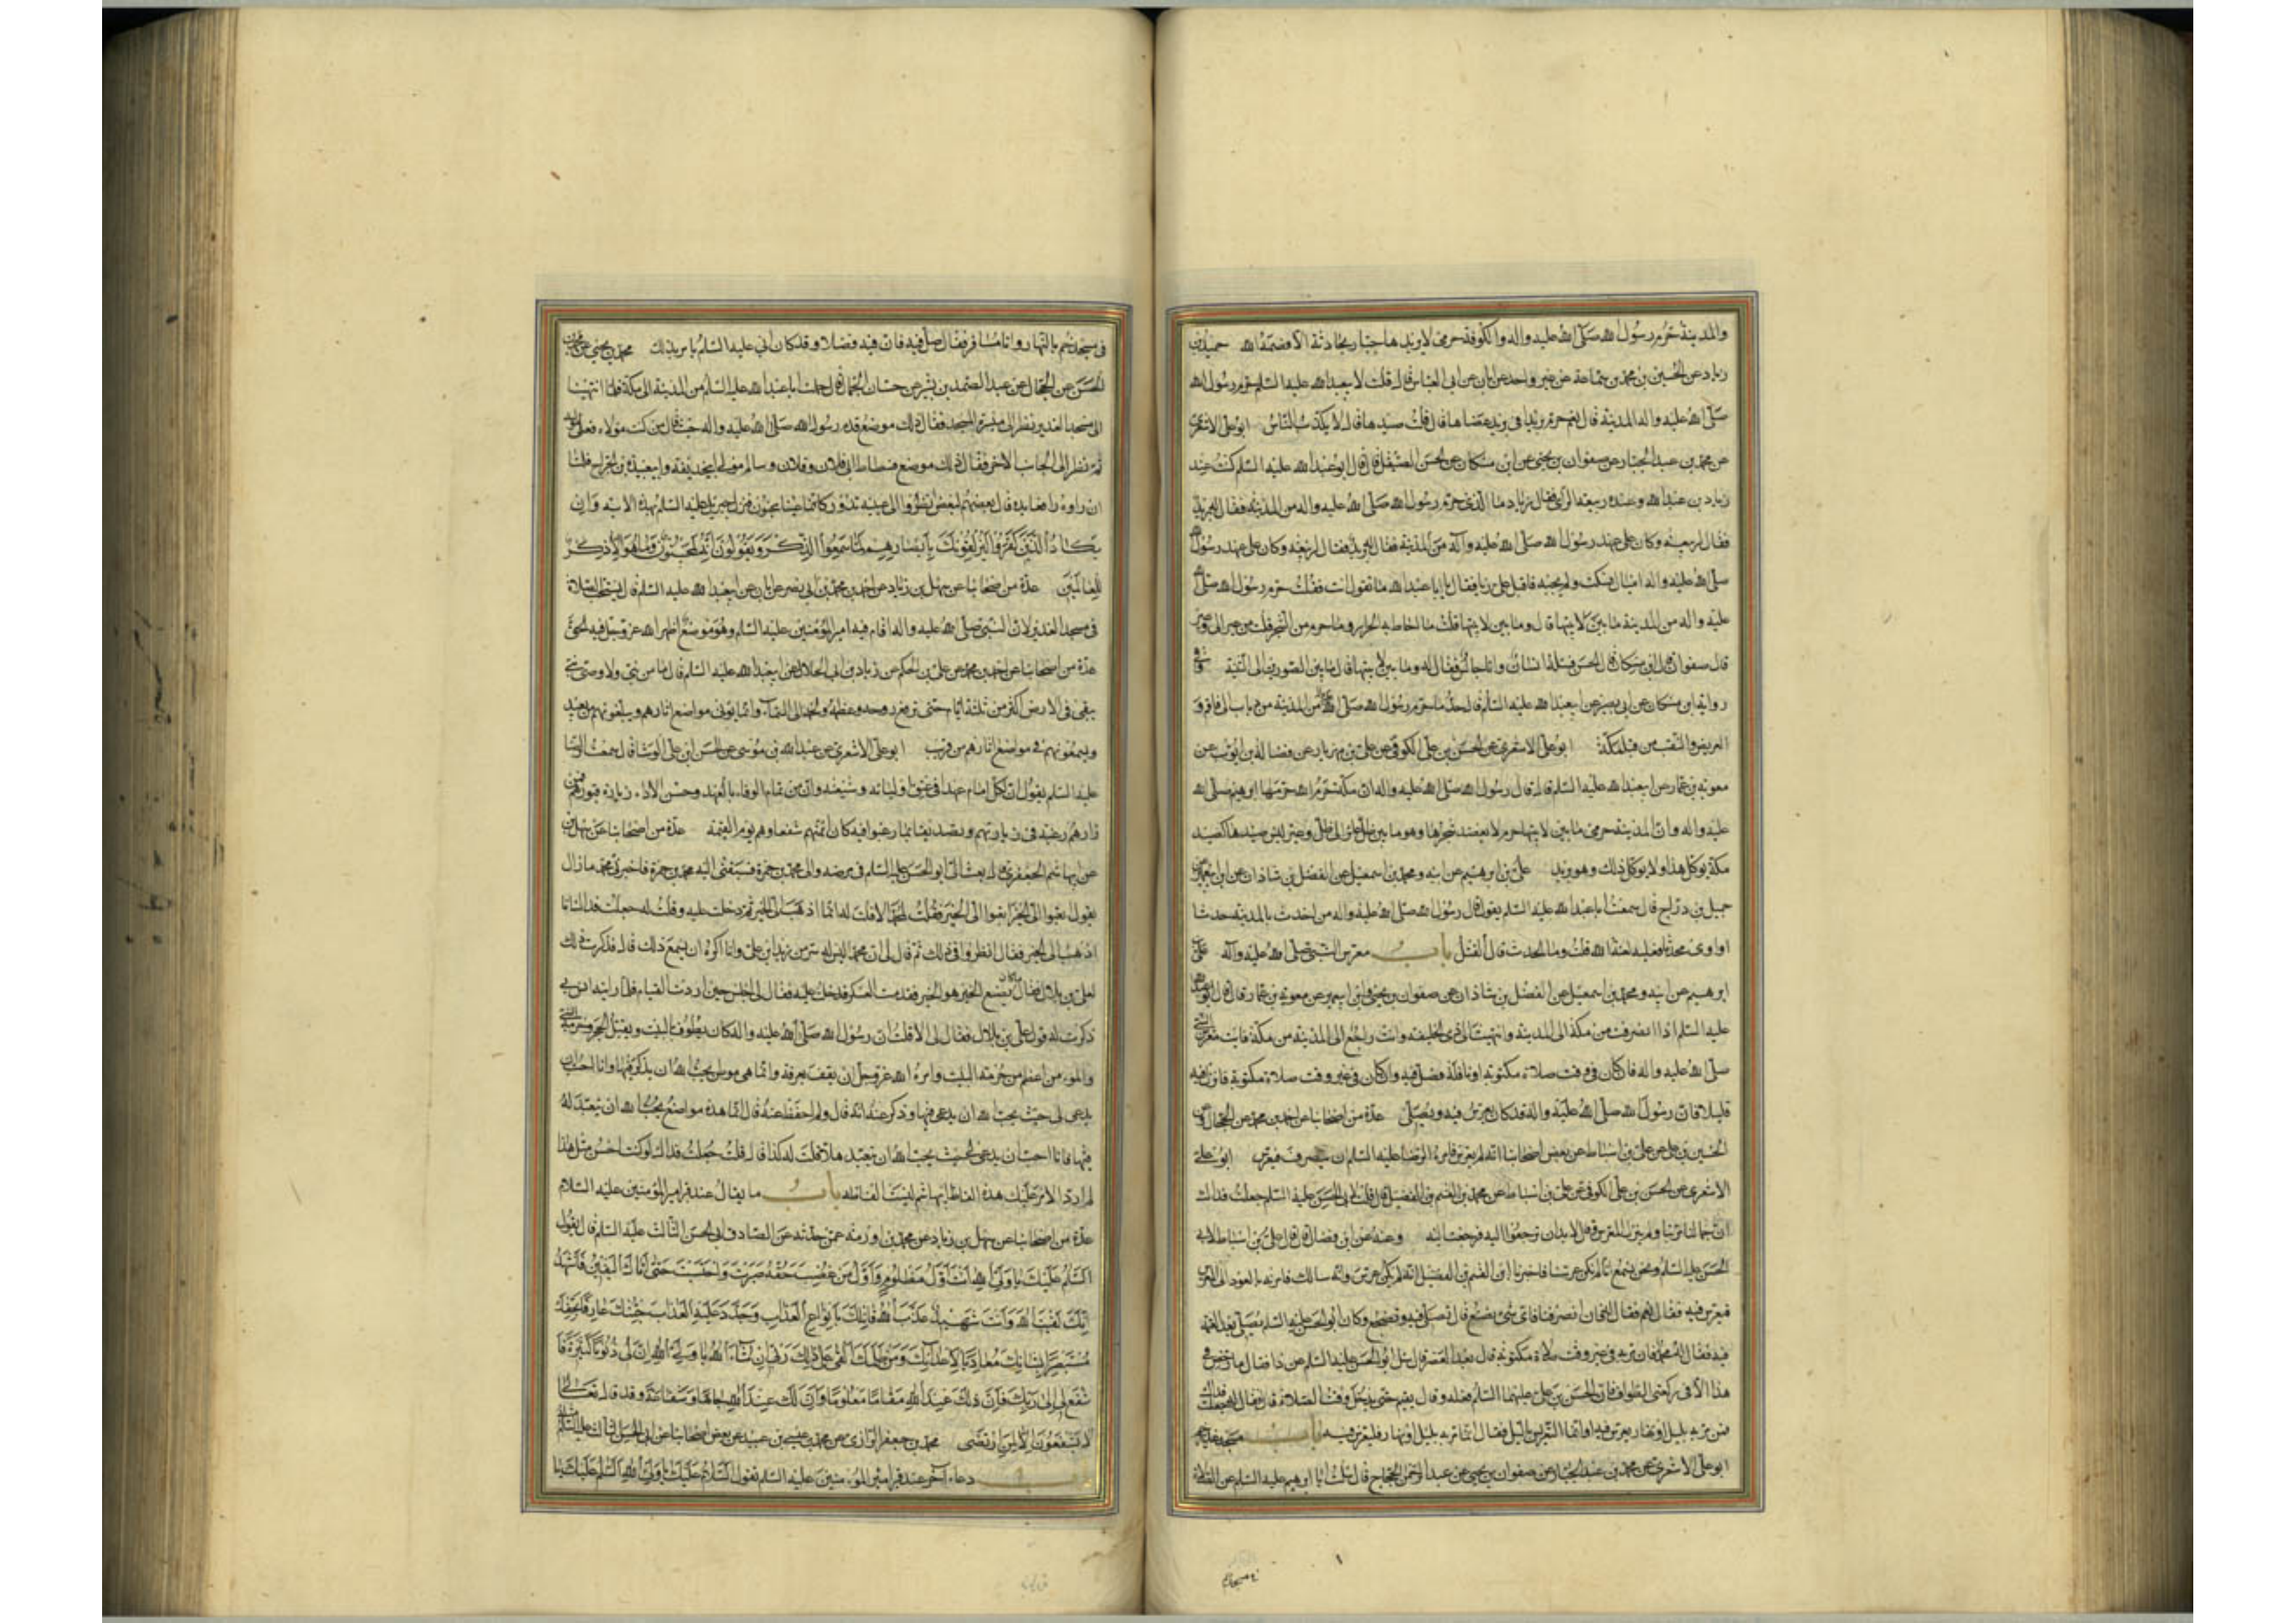 والمدينة حرم رسول الله صلى الله عليه واله والكوفة حرمى لا يريدها جبار بحادثة الا قصمه الله حميد بن
زياد عن الحسين بن محمد بن سماعة عن غير واحد عن ابان عن ابى العباس قال قلت لابيعبد الله عليه السلم حرم رسول الله
صلى الله عليه واله المدينة قال نعم حرم بريدا فى بريد عضاها قال قلت صيدها قال لا يكذب الناس ابو على الاشعرى
عن محمد بن عبد الجبار عن صفوان بن يحيى عن ابن مسكان عن الحسن الصيقل قال قال ابو عبد الله عليه السلم كنت عند
زياد بن عبد الله وعنده ربيعة الراى فقال زياد ما الذى حرم رسول الله صلى الله عليه واله من المدينة فقال له بريد
فقال لربيعة وكان على عهد رسول الله صلى الله عليه وآله من المدينة فقال بريد فقال لربيعة وكان على عهد رسول الله
صلى الله عليه واله اميال فسكت ولم يجبه فاقبل على زياد فقال يا ابا عبد الله ما تقول انت فقلت حرم رسول الله صلى الله
عليه واله من المدينة ما بين لابتيها قال وما بين لابتيها قلت ما احاطت به الحرار وما حرم من الشجر قلت من عير الى وعير
قال صفوان قال ابن مسكان قال الحسن فسئله انسان وانا جالس فقال له وما بين لابتيها قال ما بين الصورين الى الثنية وفى
رواية ابن مسكان عن ابى بصير عن ابيعبد الله عليه السلم قال حد ما حرم رسول الله صلى الله عليه من المدينة من ذباب الى فاقرو
العريض والنقب من قبل مكة ابو على الاشعرى عن الحسن بن على الكوفى عن على بن مهزيار عن فضالة بن ايوب عن
معوية بن عمار عن ابيعبد الله عليه السلم قال قال رسول الله صلى الله عليه واله ان مكة حرم الله حرمها ابرهيم صلى الله
عليه واله وان المدينة حرمى ما بين لابتيها حرم لا يعضد شجرها وهو ما بين ظل عاير الى ظل وعير ليس صيدها كصيد
مكة يوكل هذا ولا يوكل ذلك وهو بريد على بن ابرهيم عن ابيه ومحمد بن اسمعيل عن الفضل بن شاذان عن ابن ابى عمير عن
جميل بن دراج قال سمعت ابا عبد الله عليه السلم يقول قال رسول الله صلى الله عليه واله من احدث بالمدينة حدثا
او اوى محدثا فعليه لعنة الله قلت وما الحدث قال القتل باب معرس النبى صلى الله عليه وآله على بن
ابرهيم عن ابيه ومحمد بن اسمعيل عن الفضل بن شاذان عن صفوان بن يحيى وابن ابى عمير عن معوية بن عمار قال قال ابو عبد الله
عليه السلم اذا انصرفت من مكة الى المدينة وانتهيت الى ذى الحليفة وانت راجع الى المدينة من مكة فايت معرس النبى
صلى الله عليه واله فان كان فى وقت صلاة مكتوبة او نافلة فصل فيه وان كان فى غير وقت صلاة مكتوبة فانزل فيه
قليلا فان رسول الله صلى الله عليه واله قد كان يعرس فيه ويصلى عدة من اصحابنا عن احمد بن محمد عن الحجال و
الحسين بن على عن على بن اسباط عن بعض اصحابنا انه لم يعرس فامره الرضا عليه السلم ان ينصرف فيعرس ابو على
الاشعرى عن الحسن بن على الكوفى عن على بن اسباط عن محمد بن القسم بن الفضيل قال قلت لابى الحسن عليه السلم جعلت فداك
ان جمالنا مر بنا ولم ينزل المعرس فقال لا بد ان ترجعوا اليه فرجعت اليه وعنه عن ابن فضال قال قال على بن اسباط لابى
الحسن عليه السلم ونحن نسمع انا لم نكن عرسنا فاخبرنا ابن القسم بن الفضيل انه لم يكن عرس وانه سالك فامرته بالعود الى المعرس
فيعرس فيه فقال نعم فقال له فانا انصرفنا فاى شىء نصنع قال تصلى فيه وتضطجع وكان ابو الحسن عليه السلم يصلى بعد العتمة
فيه فقال له محمد فان مر به فى غير وقت صلاة مكتوبة قال بعد العصر قال سئل ابو الحسن عليه السلم عن ذا فقال ما رخص فى
هذا الا فى ركعتى الطواف فان الحسن بن على عليهما السلم فعله وقال يقيم حتى يدخل وقت الصلاة قال فقال له جعلت فداك
فمن مر به بليل او نهار يعرس فيه او انما التعريس بالليل فقال ان مر به بليل او نهار فليعرس فيه باب مسجد غدير خم
ابو على الاشعرى عن محمد بن عبد الجبار عن صفوان بن يحيى عن عبد الرحمن بن الحجاج قال سئلت ابا ابرهيم عليه السلم عن الصلاة
فى مسجد غدير خم بالنهار وانا مسافر فقال صل فيه فان فيه فضلا وقد كان ابى عليه السلم يامر بذلك محمد بن يحيى عن محمد بن
الحسن عن الحجال عن عبد الصمد بن بشير عن حسان الجمال قال حملت ابا عبد الله عليه السلم من المدينة الى مكة فلما انتهينا
الى مسجد الغدير نظر الى ميسرة المسجد فقال ذلك موضع قدم رسول الله صلى الله عليه واله حيث قال من كنت مولاه فعلى مولاه
ثم نظر الى الجانب الاخر فقال ذلك موضع فسطاط ابى فلان وفلان وسالم مولى ابيحذيفة وابيعبيدة بن الجراح فلما
ان راوه رافعا يده قال بعضهم لبعض انظروا الى عينيه تدور كانما عينا مجنون فنزل جبرئيل عليه السلم بهذه الاية وان
يكاد الذين كفروا ليزلقونك بابصارهم لما سمعوا الذكر ويقولون انه لمجنون وما هو الا ذكر
للعالمين عدة من اصحابنا عن سهل بن زياد عن احمد بن محمد بن ابى نصر عن ابان عن ابيعبد الله عليه السلم قال يستحب الصلاة
فى مسجد الغدير لان النبى صلى الله عليه واله اقام فيه امير المؤمنين عليه السلم وهو موضع اظهر الله عز وجل فيه الحق
عدة من اصحابنا عن احمد بن محمد عن على بن الحكم عن زياد بن ابى الحلال عن ابيعبد الله عليه السلم قال ما من نبى ولا وصى نبى
يبقى فى الارض اكثر من ثلثة ايام حتى ترفع روحه وعظمه ولحمه الى السماء وانما يوتى مواضع اثارهم ويبلغونهم من بعيد
ويسمعونهم فى مواضع اثارهم من قريب ابو على الاشعرى عن عبد الله بن موسى عن الحسن بن على الوشا قال سمعت الرضا
عليه السلم يقول ان لكل امام عهدا فى عنق اوليائه وشيعته وان من تمام الوفاء بالعهد وحسن الاداء زيارة قبورهم فمن
زارهم رغبة فى زيارتهم وتصديقا بما رغبوا فيه كان ائمتهم شفعاءهم يوم القيمة عدة من اصحابنا عن سهل بن
عن ابيهاشم الجعفرى قال بعث الى ابو الحسن عليه السلم فى مرضه والى محمد بن حمزة فسبقنى اليه محمد بن حمزة فاخبرنى محمد ما زال
يقول ابعثوا الى الحير ابعثوا الى الحير فقلت لمحمد الا قلت له انا اذهب الى الحير ثم دخلت عليه وقلت له جعلت فداك انا
اذهب الى الحير فقال انظروا فى ذلك ثم قال لى ان محمدا ليس له سر من زيد بن على وانا اكره ان يسمع ذلك قال فذكرت ذلك
لعلى بن بلال فقال ما كان يصنع الحير هو الحير فقدمت العسكر فدخلت عليه فقال لى اجلس حين اردت القيام فلما رايته انس بى
ذكرت له قول على بن بلال فقال لى الا قلت ان رسول الله صلى الله عليه واله كان يطوف بالبيت ويقبل الحجر وحرمة النبى
والمؤمن اعظم من حرمة البيت وامره الله عز وجل ان يقف بعرفة وانما هى مواطن يحب الله ان يذكر فيها وانا احب ان
يدعى لى حيث يحب الله ان يدعى فيها وذكر عنه انه قال ولم احفظ عنه قال انما هذه مواضع يحب الله ان يتعبد له
فيها فانا احب ان يدعى لى حيث يحب الله ان يتعبد هلا قلت له كذا قال قلت جعلت فداك لو كنت احسن مثل هذا
لم ارد الامر عليك هذه الفاظ ابيهاشم ليست الفاظه باب ما يقال عند قبر امير المؤمنين عليه السلام
عدة من اصحابنا عن سهل بن زياد عن محمد بن اورمة عمن حدثه عن الصادق ابى الحسن الثالث عليه السلم قال يقول
السلام عليك يا ولى الله انت اول مظلوم واول من غصب حقه صبرت واحتسبت حتى اتاك اليقين فاشهد
انك لقيت الله وانت شهيد عذب الله قاتلك بانواع العذاب وجدد عليه العذاب جئتك عارفا بحقك
مستبصرا بشانك معاديا لاعدائك ومن ظلمك القى على ذلك ربى ان شاء الله يا ولى الله ان لى ذنوبا كثيرة فا
شفع لى الى ربك فان لك عند الله مقاما معلوما وان لك عند الله جاها وشفاعة وقد قال تعالى
لا يشفعون الا لمن ارتضى محمد بن جعفر الرازى عن محمد بن عيسى بن عبيد عن بعض اصحابنا عن ابى الحسن الثالث عليه السلم مثله
باب دعاء آخر عند قبر امير المؤمنين عليه السلم تقول السلام عليك يا ولى الله السلام عليك يا